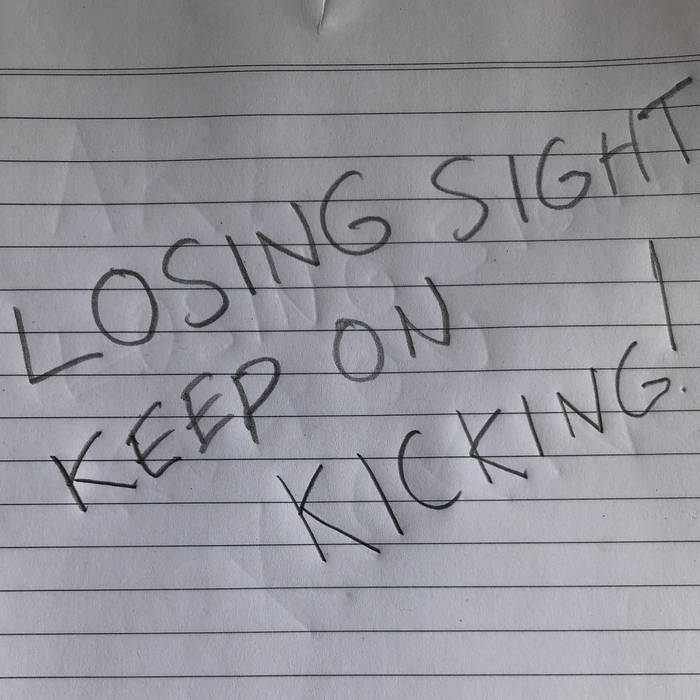 LOSING SIGHT
KEEP ON
KICKING!